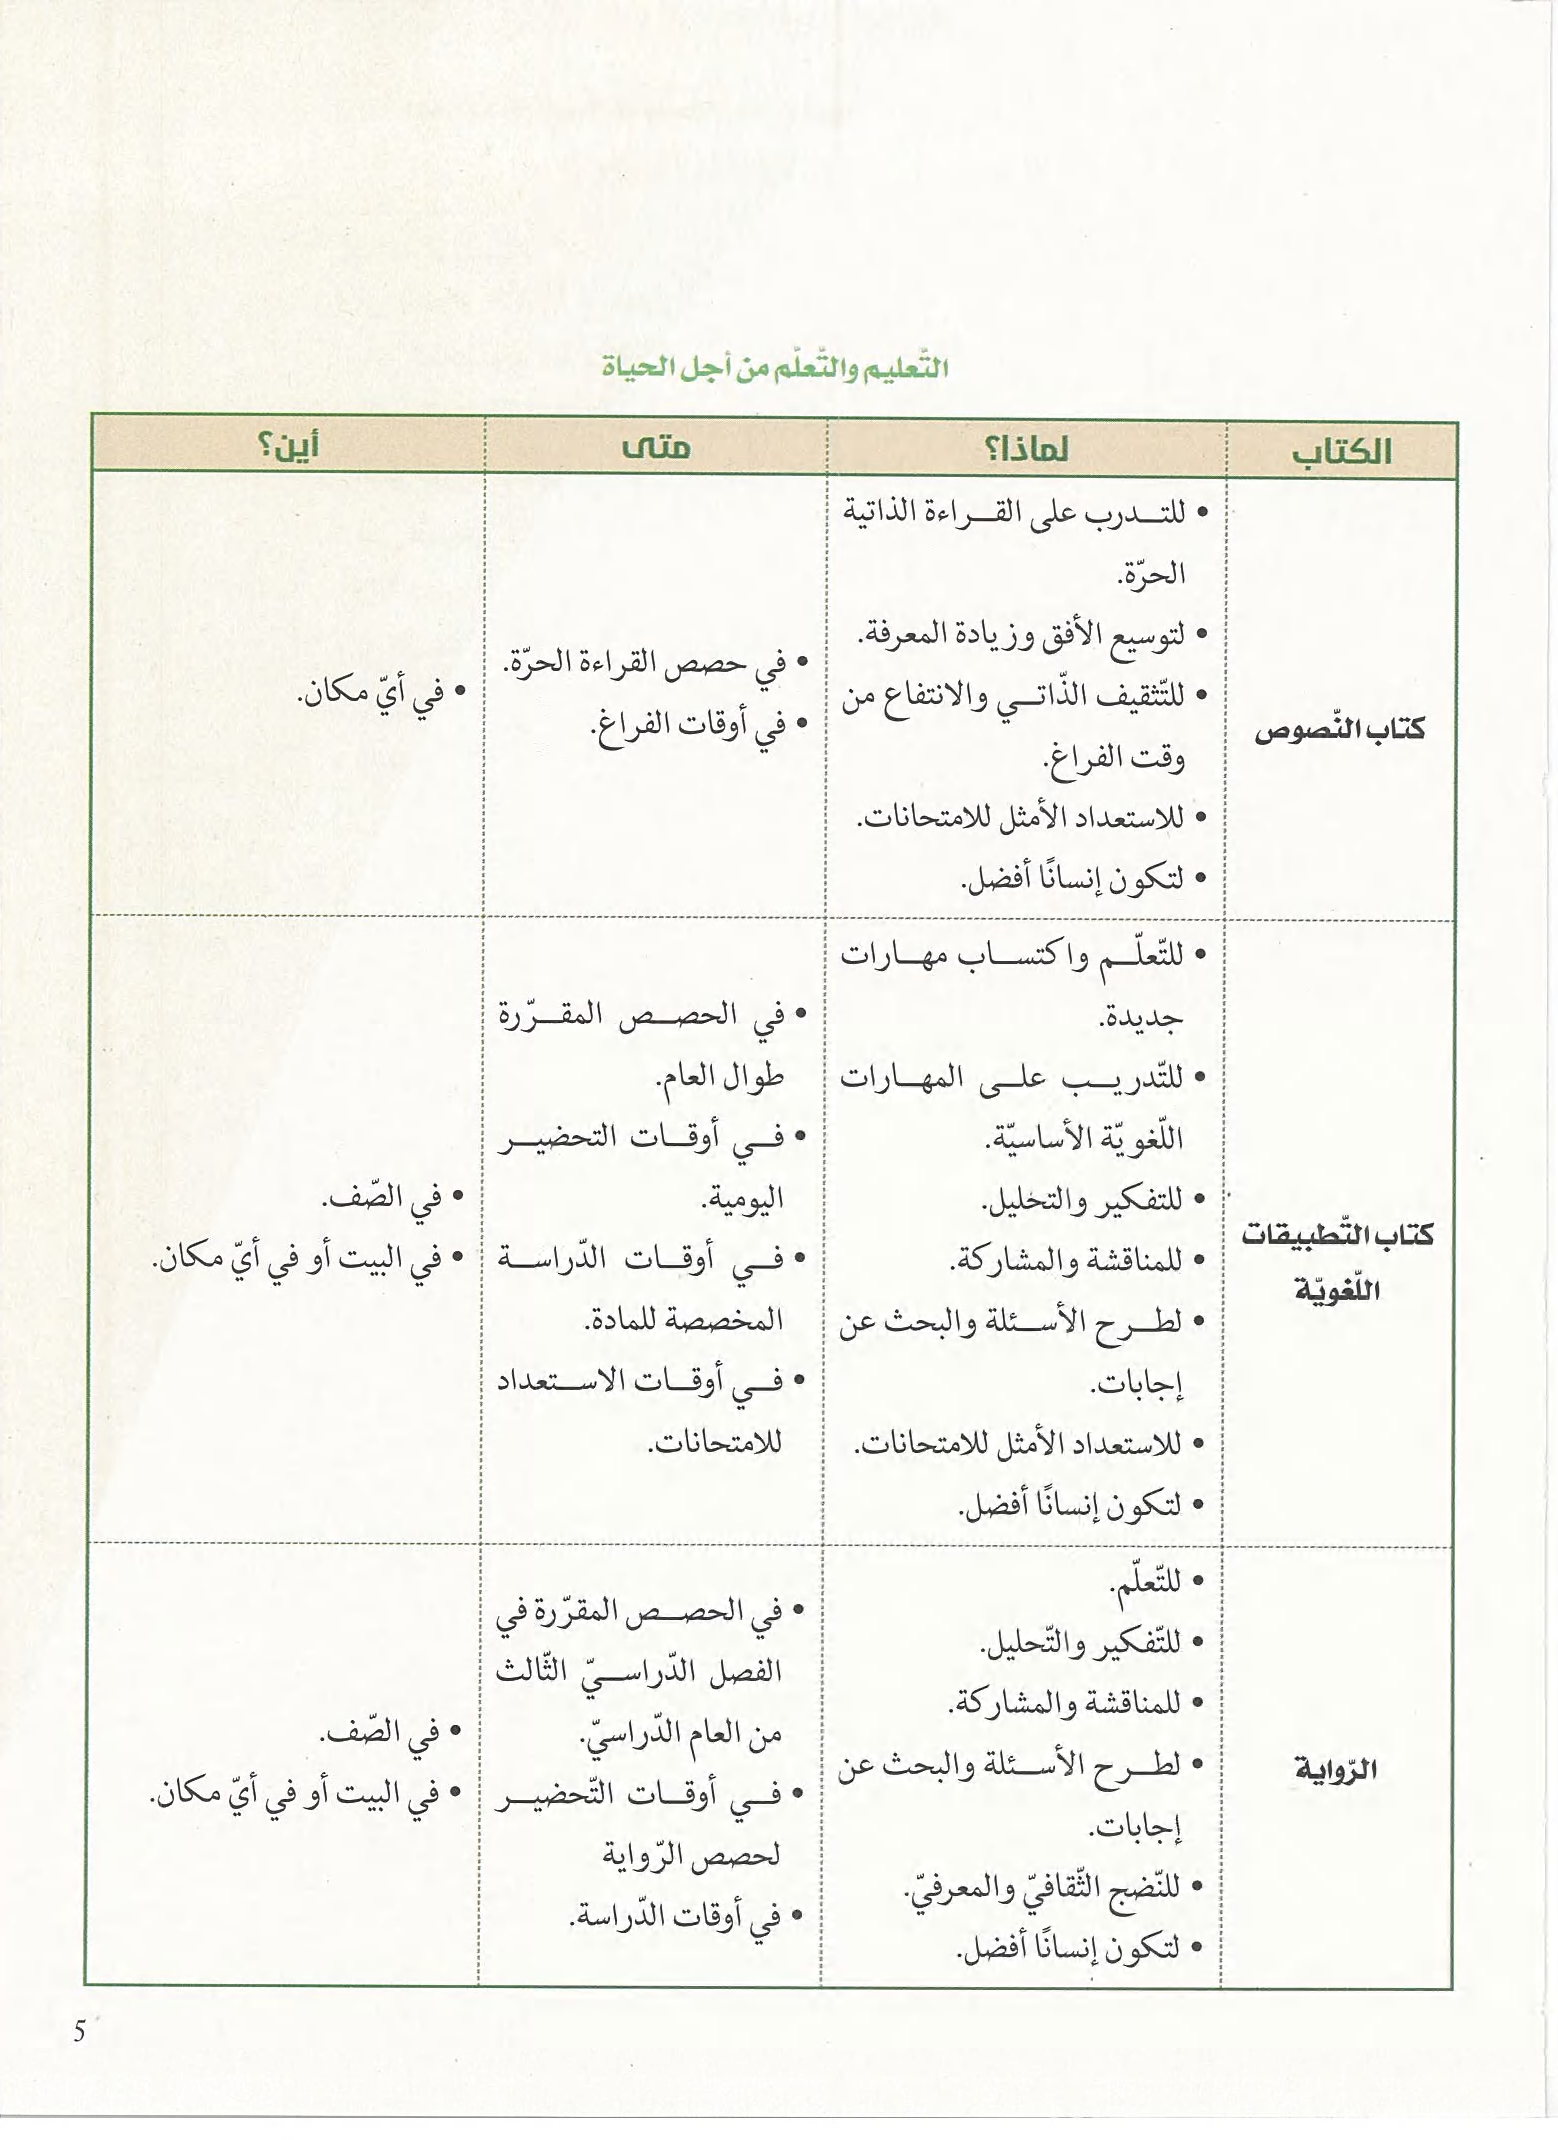 التّعليم والتّعلّم من أجل الحياة
الكتاب لماذا؟ متى أين؟
كتاب النّصوص
• للتـدرب على القـراءة الذاتية
الحرّة.
• لتوسيع الأفق وزيادة المعرفة.
• للتّثقيف الذّاتـي والانتفاع من
وقت الفراغ.
• للاستعداد الأمثل للامتحانات.
• لتكون إنسانًا أفضل.
• في حصص القراءة الحرّة.
• في أوقات الفراغ.
• في أيّ مكان.
كتاب التّطبيقات
اللّغويّة
• للتّعلّـم واكتسـاب مهـارات
جديدة.
• للتّدريـب علـى المهـارات
اللّغويّة الأساسيّة.
• للتفكير والتحليل.
• للمناقشة والمشاركة.
• لطـرح الأسـئلة والبحث عن
إجابات.
• للاستعداد الأمثل للامتحانات.
• لتكون إنسانًا أفضل.
• في الحصـص المقـرّرة
طوال العام.
• فـي أوقـات التحضيـر
اليومية.
• فـي أوقـات الدّراسـة
المخصصة للمادة.
• فـي أوقـات الاسـتعداد
للامتحانات.
• في الصّف.
• في البيت أو في أيّ مكان.
الرّواية
• للتّعلّم.
• للتّفكير والتّحليل.
• للمناقشة والمشاركة.
• لطـرح الأسـئلة والبحث عن
إجابات.
• للنّضج الثّقافيّ والمعرفيّ.
• لتكون إنسانًا أفضل.
• في الحصـص المقرّرة في
الفصل الدّراسـيّ الثّالث
من العام الدّراسيّ.
• فـي أوقـات التّحضيـر
لحصص الرّواية
• في أوقات الدّراسة.
• في الصّف.
• في البيت أو في أيّ مكان.
5